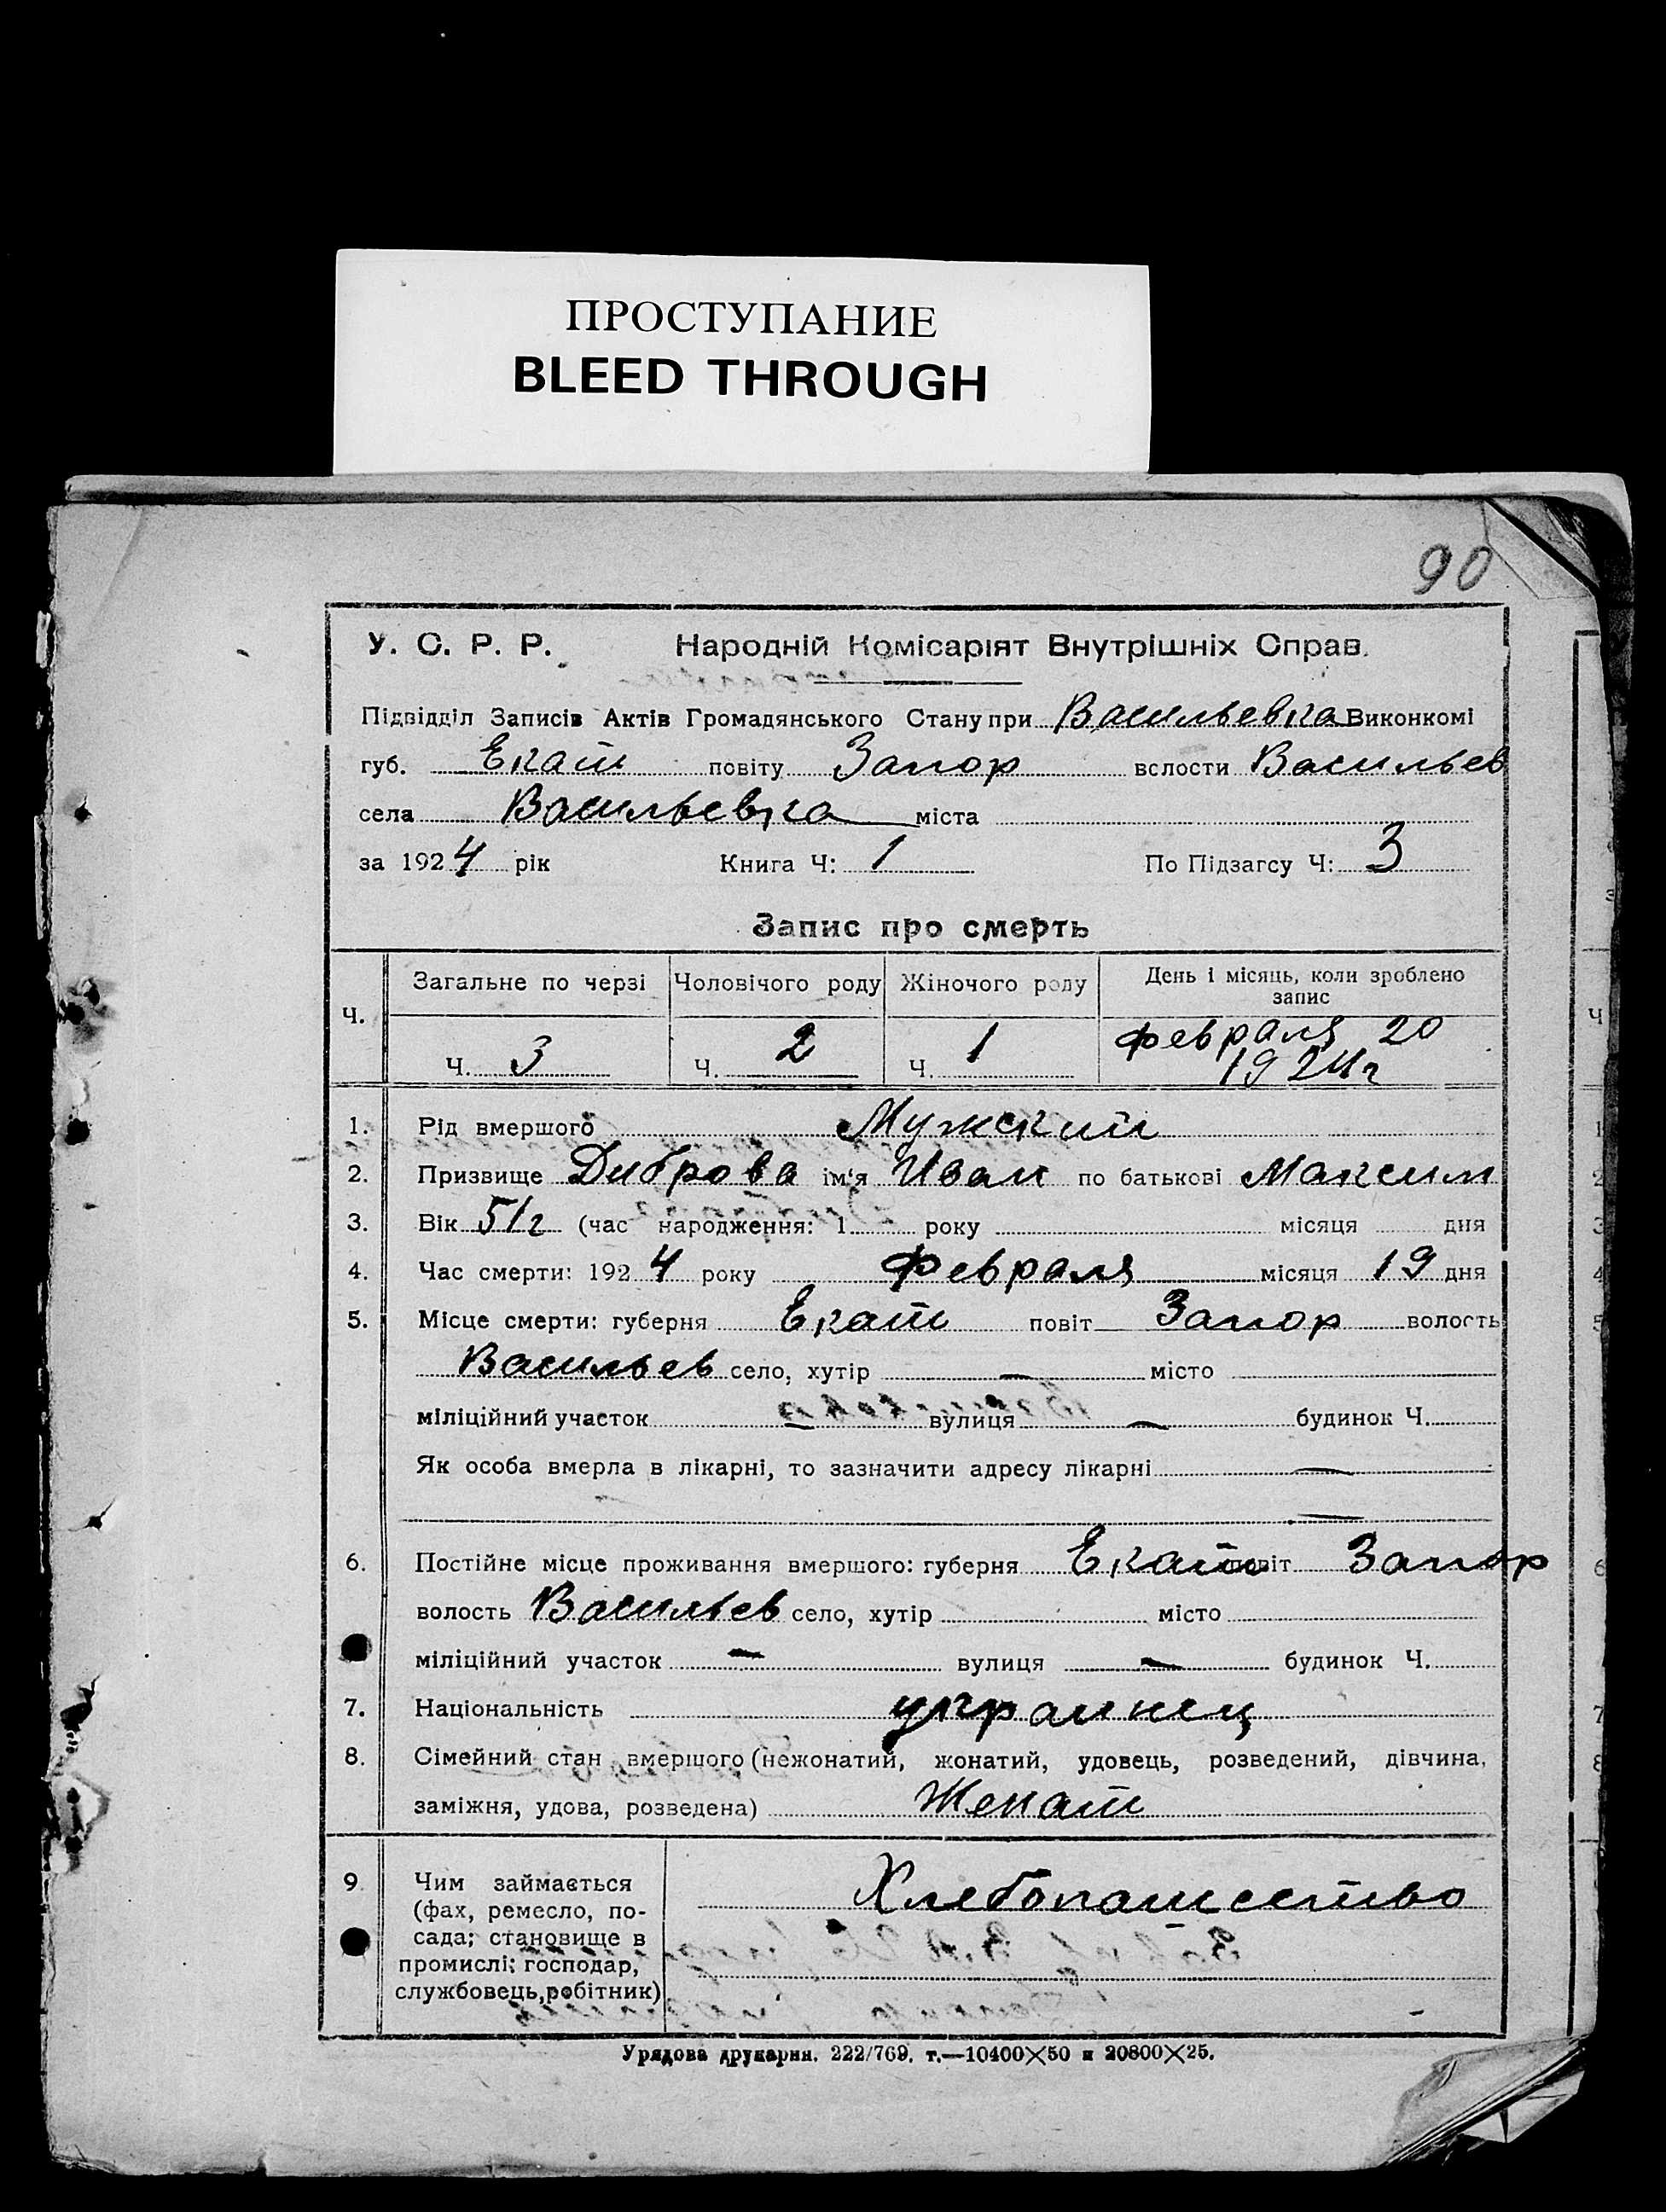 ПРОСТУПАНИЕ
BLEED THROUGH
90
У. С. Р. Р. Народній Комісаріят Внутрішніх Справ.
Підвідділ Записів Актів Громадянського Стану при Васильевка Виконкомі
губ. Екат повіту Запор вслости Васильев
села Васильевка міста
за 1924 рік Книга Ч: 1 По Підзагсу Ч: 3
Запис про смерть
Ч. Загальне по черзі Чоловічого роду Жіночого роду День і місяць, коли зроблено запис
Ч. 3 Ч. 2 Ч. 1 Февраля 20
1924г
1. Рід вмершого Мужский
2. Призвище Диброва ім'я Иван по батькові Максим
3. Вік 51г (час народження: 1 року місяця дня
4. Час смерти: 1924 року Февраля місяця 19 дня
5. Місце смерти: губерня Екат повіт Запор волость
Васильев село, хутір — місто
міліційний участок — вулиця — будинок Ч.
Як особа вмерла в лікарні, то зазначити адресу лікарні —
—
6. Постійне місце проживання вмершого: губерня Екат повіт Запор
волость Васильев село, хутір місто
міліційний участок — вулиця — будинок Ч.
7. Національність украинец
8. Сімейний стан вмершого (нежонатий, жонатий, удовець, розведений, дівчина,
заміжня, удова, розведена) Женат
9. Чим займається Хлебопашество
(фах, ремесло, по-
сада; становище в
промислі; господар,
службовець,робітник)
Урядова друкарня. 222/769. т.—10400×50 и 20800×25.